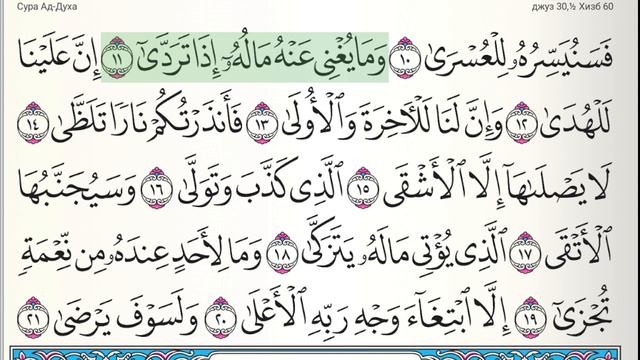 Сура Ад-Духа джуз 30,½ Хизб 60
فَسَنُيَسِّرُهُۥ لِلۡعُسۡرَىٰ ١٠ وَمَا يُغۡنِي عَنۡهُ مَالُهُۥٓ إِذَا تَرَدَّىٰٓ ١١ إِنَّ عَلَيۡنَا
لَلۡهُدَىٰ ١٢ وَإِنَّ لَنَا لَلۡأٓخِرَةَ وَٱلۡأُولَىٰ ١٣ فَأَنذَرۡتُكُمۡ نَارٗا تَلَظَّىٰ ١٤
لَا يَصۡلَىٰهَآ إِلَّا ٱلۡأَشۡقَى ١٥ ٱلَّذِي كَذَّبَ وَتَوَلَّىٰ ١٦ وَسَيُجَنَّبُهَا
ٱلۡأَتۡقَى ١٧ ٱلَّذِي يُؤۡتِي مَالَهُۥ يَتَزَكَّىٰ ١٨ وَمَا لِأَحَدٍ عِندَهُۥ مِن نِّعۡمَةٖ
تُجۡزَىٰٓ ١٩ إِلَّا ٱبۡتِغَآءَ وَجۡهِ رَبِّهِ ٱلۡأَعۡلَىٰ ٢٠ وَلَسَوۡفَ يَرۡضَىٰ ٢١